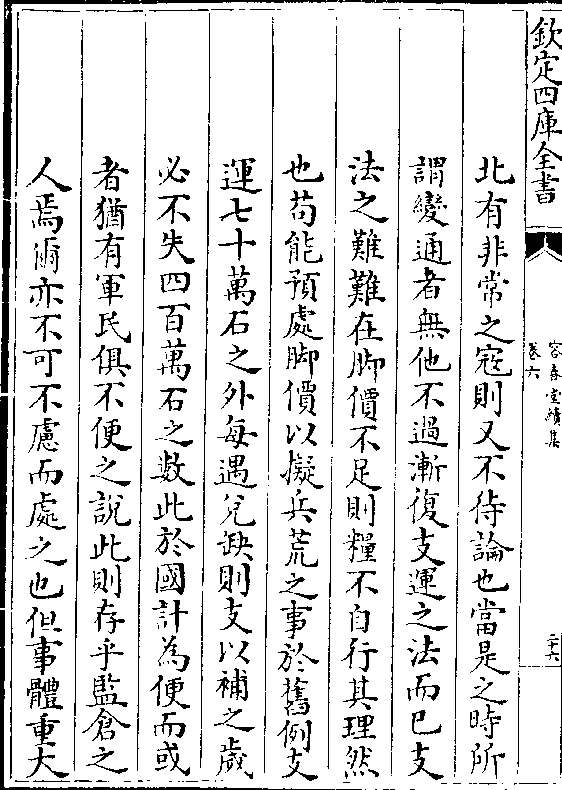 欽定四庫全書
容春堂續集
卷六
二十六
北有非常之寇則又不待論也當是之時所
謂變通者無他不過漸復支運之法而已支
法之難難在脚價不足則糧不自行其理然
也苟能預處脚價以擬兵荒之事於舊例支
運七十萬石之外每遇兌缺則支以補之歲
必不失四百萬石之數此於國計為便而或
者猶有軍民俱不便之說此則存乎監倉之
人焉爾亦不可不慮而處之也但事體重大